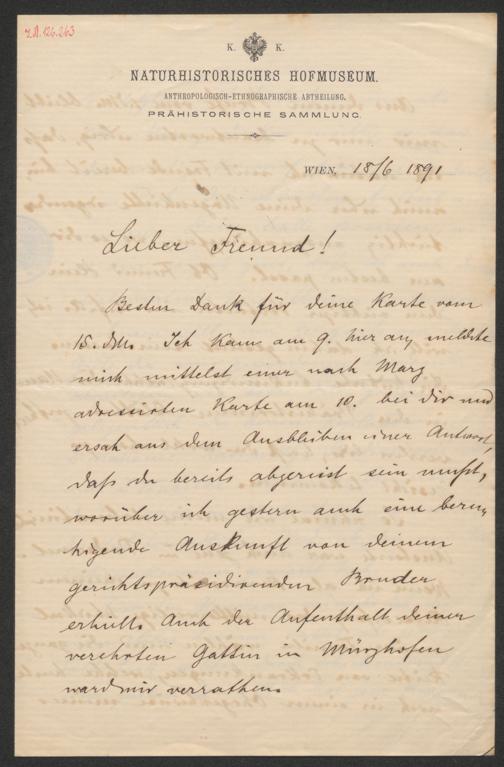 I.N. 126.263
K. K.
NATURHISTORISCHES HOFMUSEUM.
ANTHROPOLOGISCH-ETHNOGRAPHISCHE ABTHEILUNG.
PRÄHISTORISCHE SAMMLUNG.
WIEN, 18/6 1891
Lieber Freund!
Besten Dank für deine Karte vom
15. d.M. Ich kam am 9. hier an, meldete
mich mittelst einer nach Marg
adressirten Karte am 10. bei dir und
ersah aus dem Ausbleiben einer Antwort,
daß du bereits abgereist sein mußt,
worüber ich gestern auch eine beru-
higende Auskunft von deinem
gerichtspräsidirenden Bruder
erhielt. Auch der Aufenthalt deiner
verehrten Gattin in Mürzhofen
ward mir verrathen.